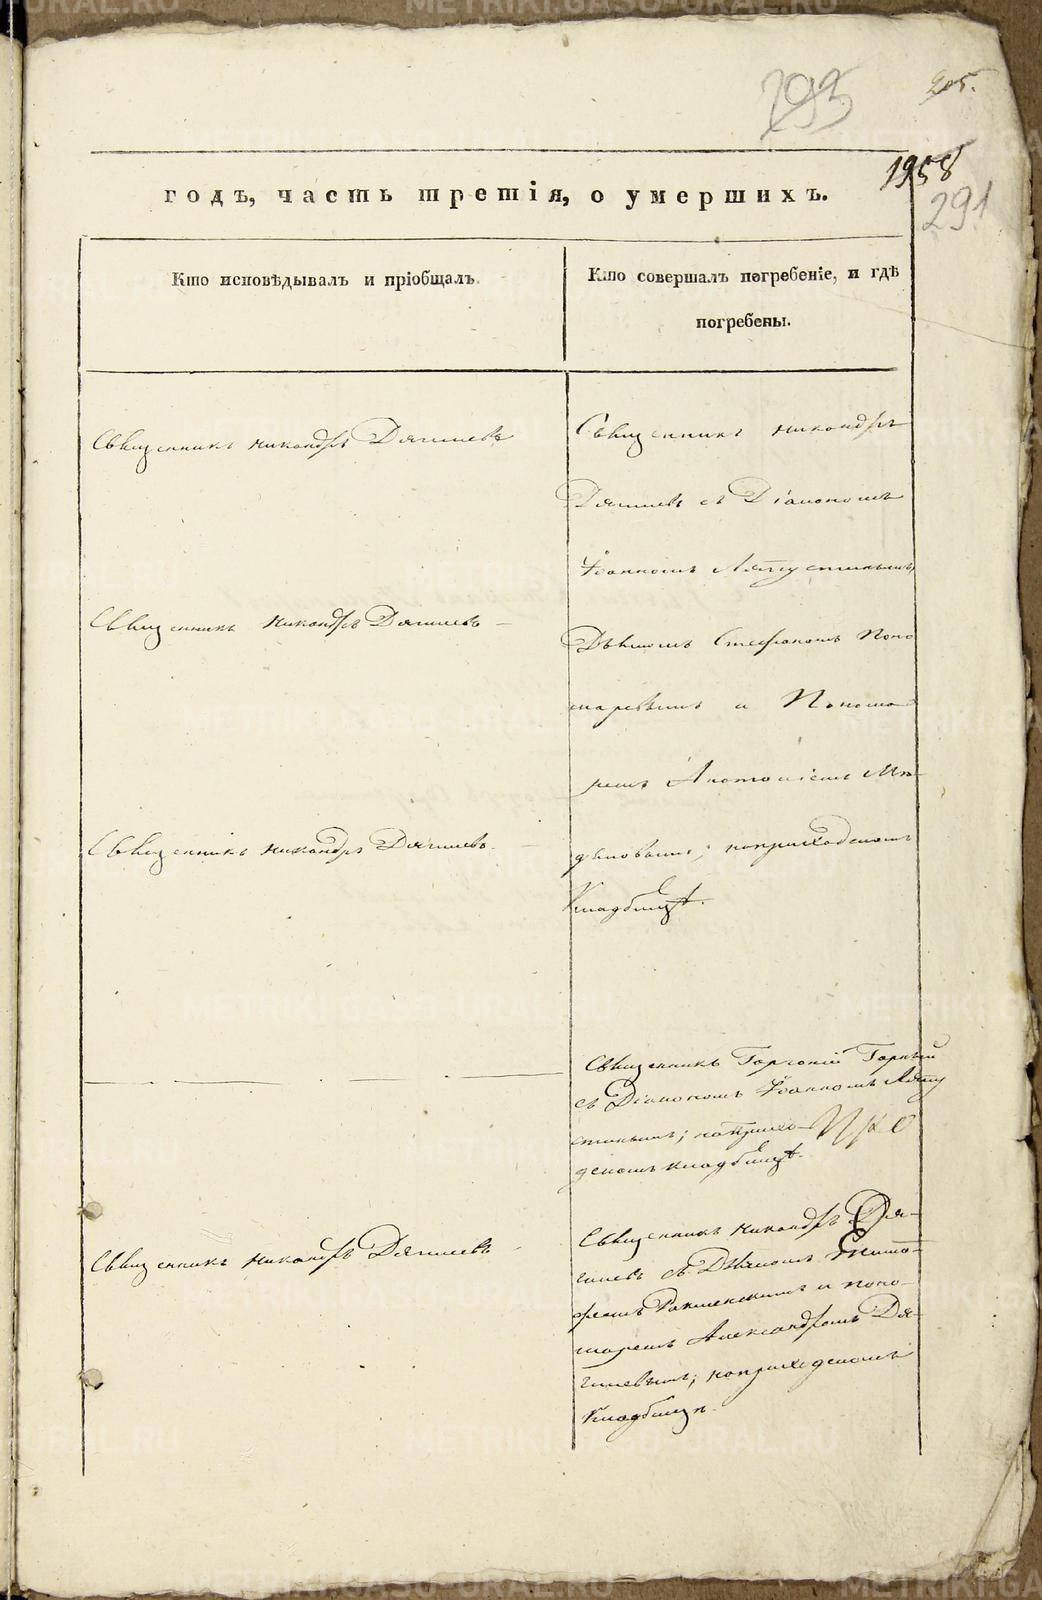 293
205.
1958
291
годъ, часть третія, о умершихъ.
Кто исповѣдывалъ и пріобщалъ.
Кто совершалъ погребеніе, и гдѣ
погребены.
Священникъ Никандръ Дягилевъ
Священникъ Никандръ
Дягилевъ съ Діакономъ
Іоанномъ Ляпустинымъ,
Священникъ Никандръ Дягилевъ
Дьячкомъ Стефаномъ Поно
маревымъ и Понома
ремъ Анатоліемъ
Священникъ Никандръ Дягилевъ.
наприходскомъ
Кладбищѣ.
Священникъ Горгоній
съ Діакономъ Іоанномъ Ляпу
стинымъ; наприхо
дскомъ кладбищѣ.
Священникъ Никандръ Дягилевъ
Священникъ Никандръ Дя-
гилевъ съ Дьячкомъ
и поно-
маремъ Александромъ Дя-
гилевымъ; наприходскомъ
Кладбищѣ.
METRIKI.GASO-URAL.RU